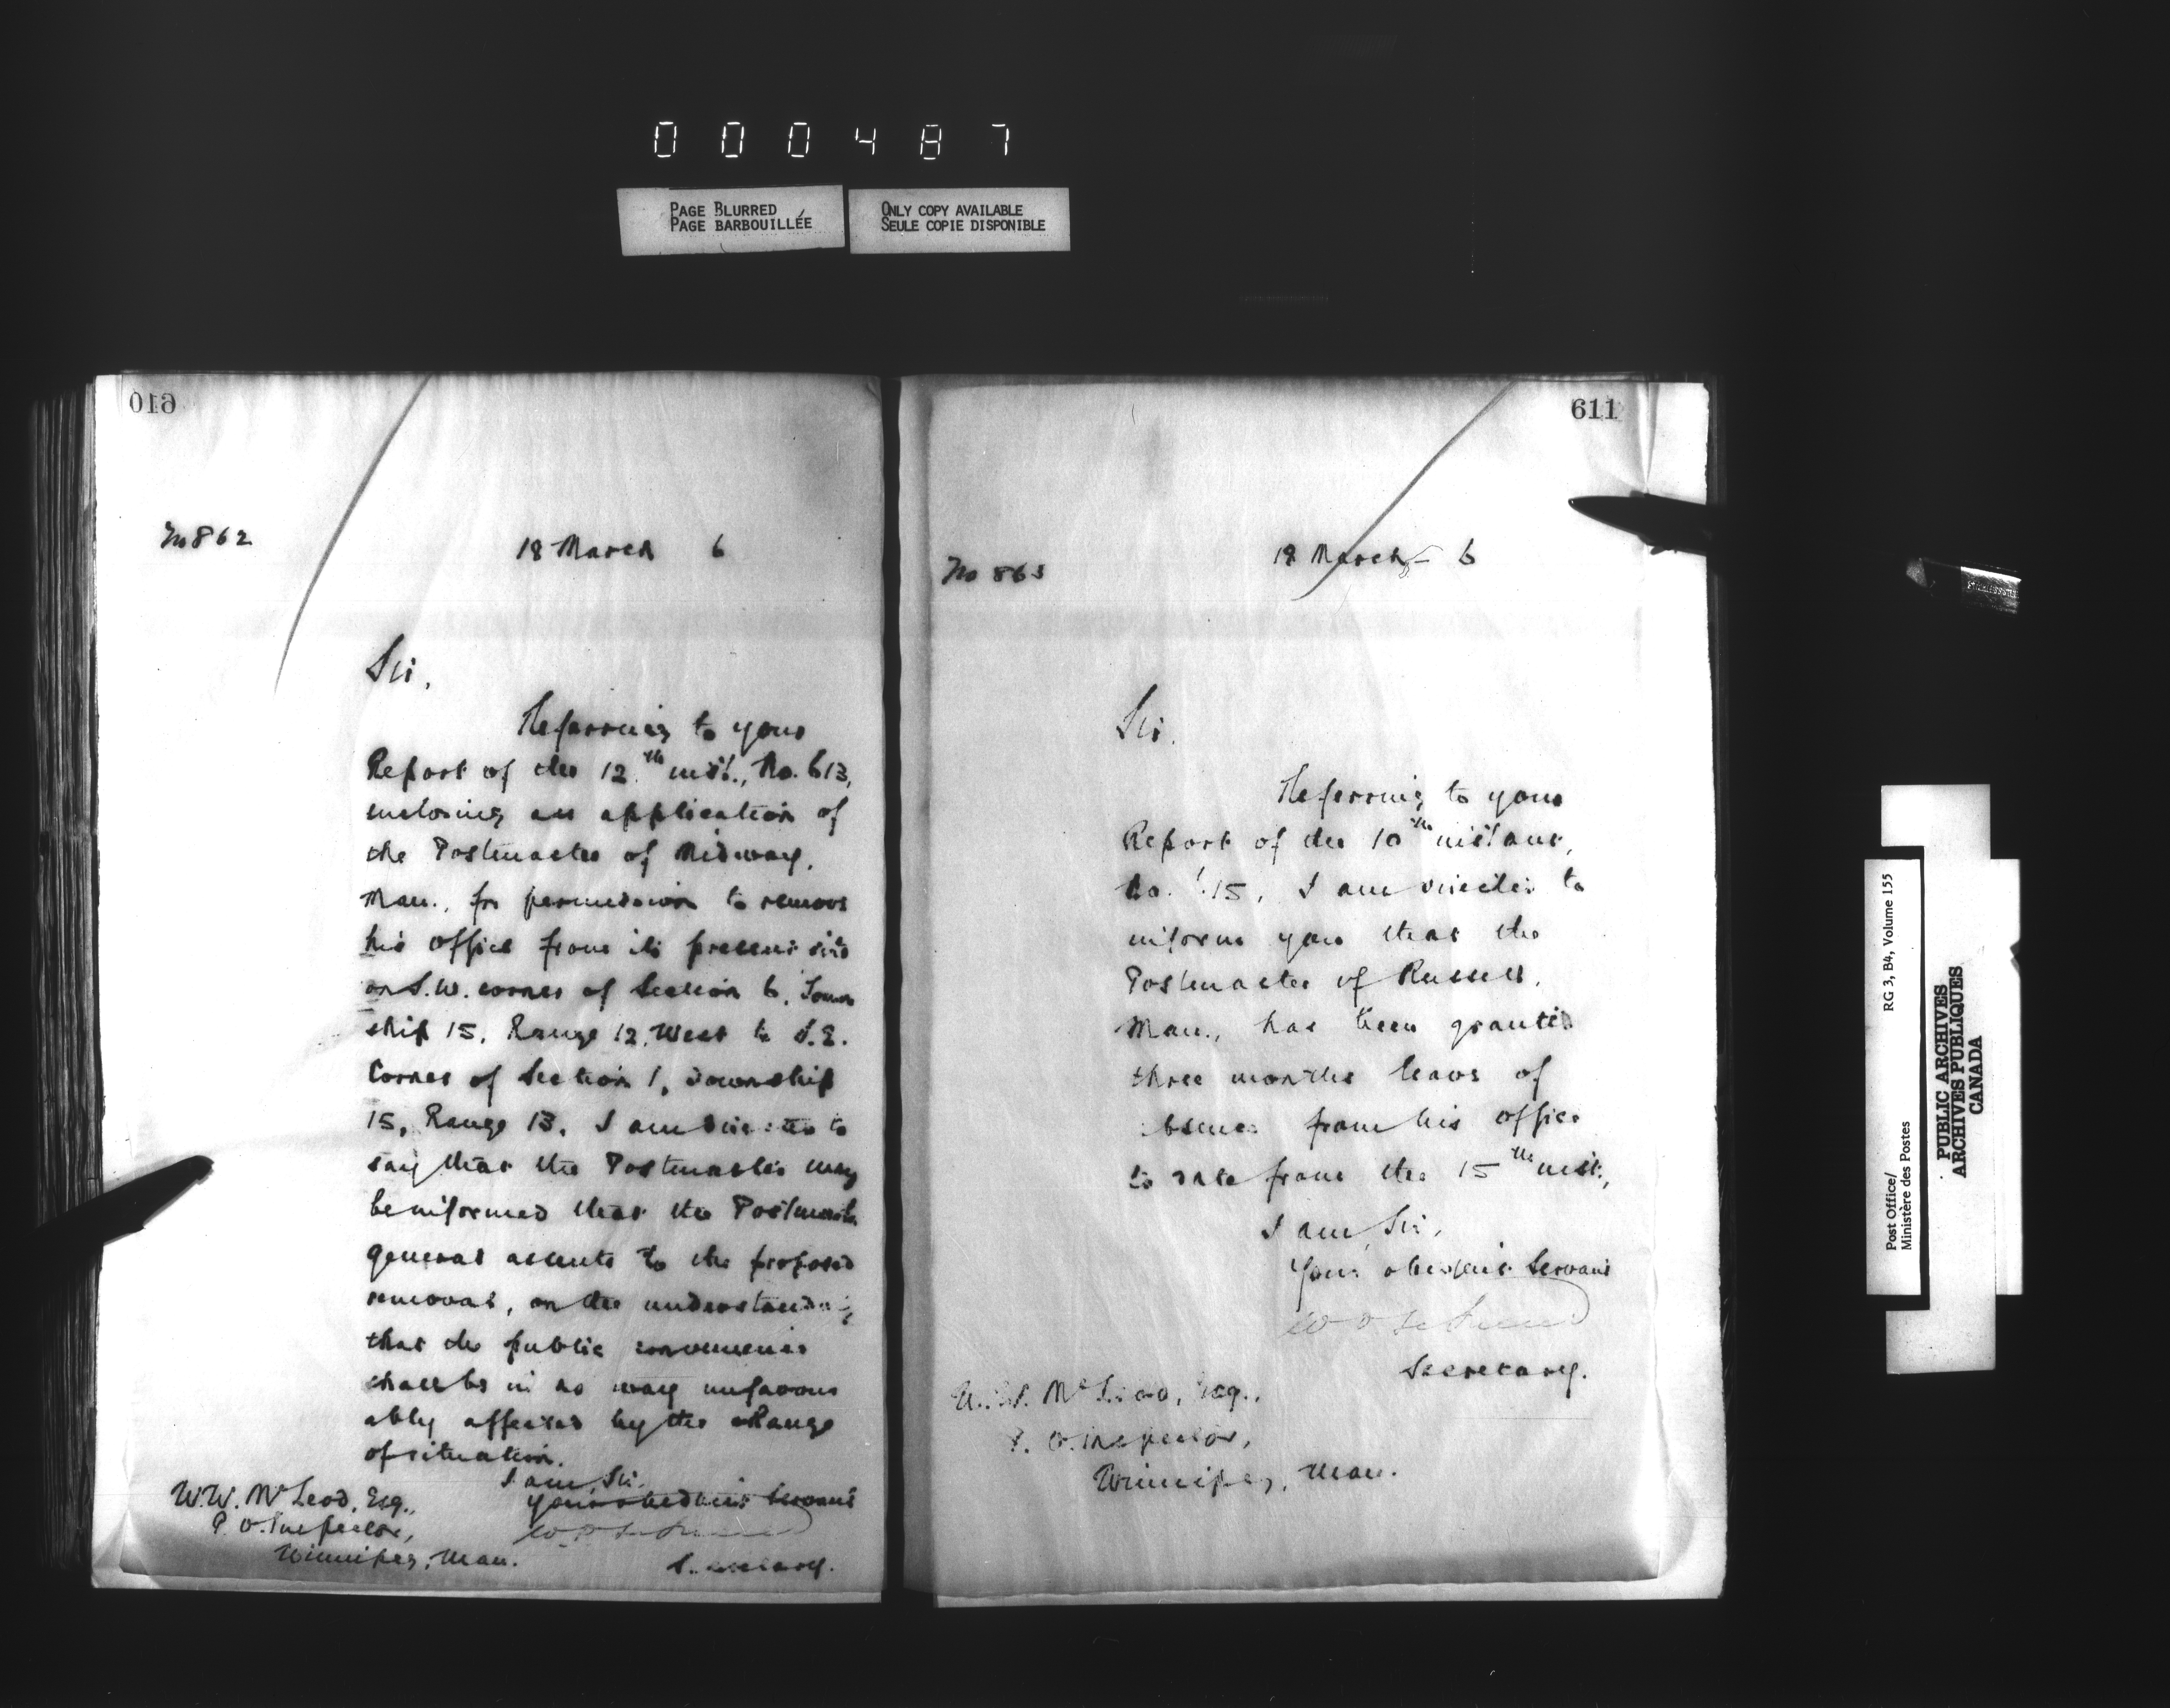 000487
PAGE BLURRED
PAGE BARBOUILLÉE
ONLY COPY AVAILABLE
SEULE COPIE DISPONIBLE
610
No 862
18 March 6
Sir,
Referring to your
Report of the 12th inst., No. 613,
enclosing an application of
the Postmaster of Midway,
Man., for permission to remove
his office from its present site
on S.W. corner of Section 6, Town
ship 15, Range 12, West to S.E.
Corner of Section 1, Township
15, Range 13, I am directed to
say that the Postmaster may
be informed that the Postmaster
General assents to the proposed
removal, on the understanding
that the public convenience
shall be in no way unfavour
ably affected by the change
of situation.
I am, Sir,
Your obedient Servant
Secretary.
W.W. McLeod, Esq.,
P.O. Inspector,
Winnipeg, Man.
611
No 863
18 March 6
Sir,
Referring to your
Report of the 10th instant,
No. 15, I am directed to
inform you that the
Postmaster of Russell,
Man., has been granted
three months leave of
absence from his office
to date from the 15th inst.,
I am, Sir,
Your obedient Servant
Secretary.
W.W. McLeod, Esq.,
P.O. Inspector,
Winnipeg, Man.
Post Office/
Ministère des Postes
RG 3, B4, Volume 155
PUBLIC ARCHIVES
ARCHIVES PUBLIQUES
CANADA